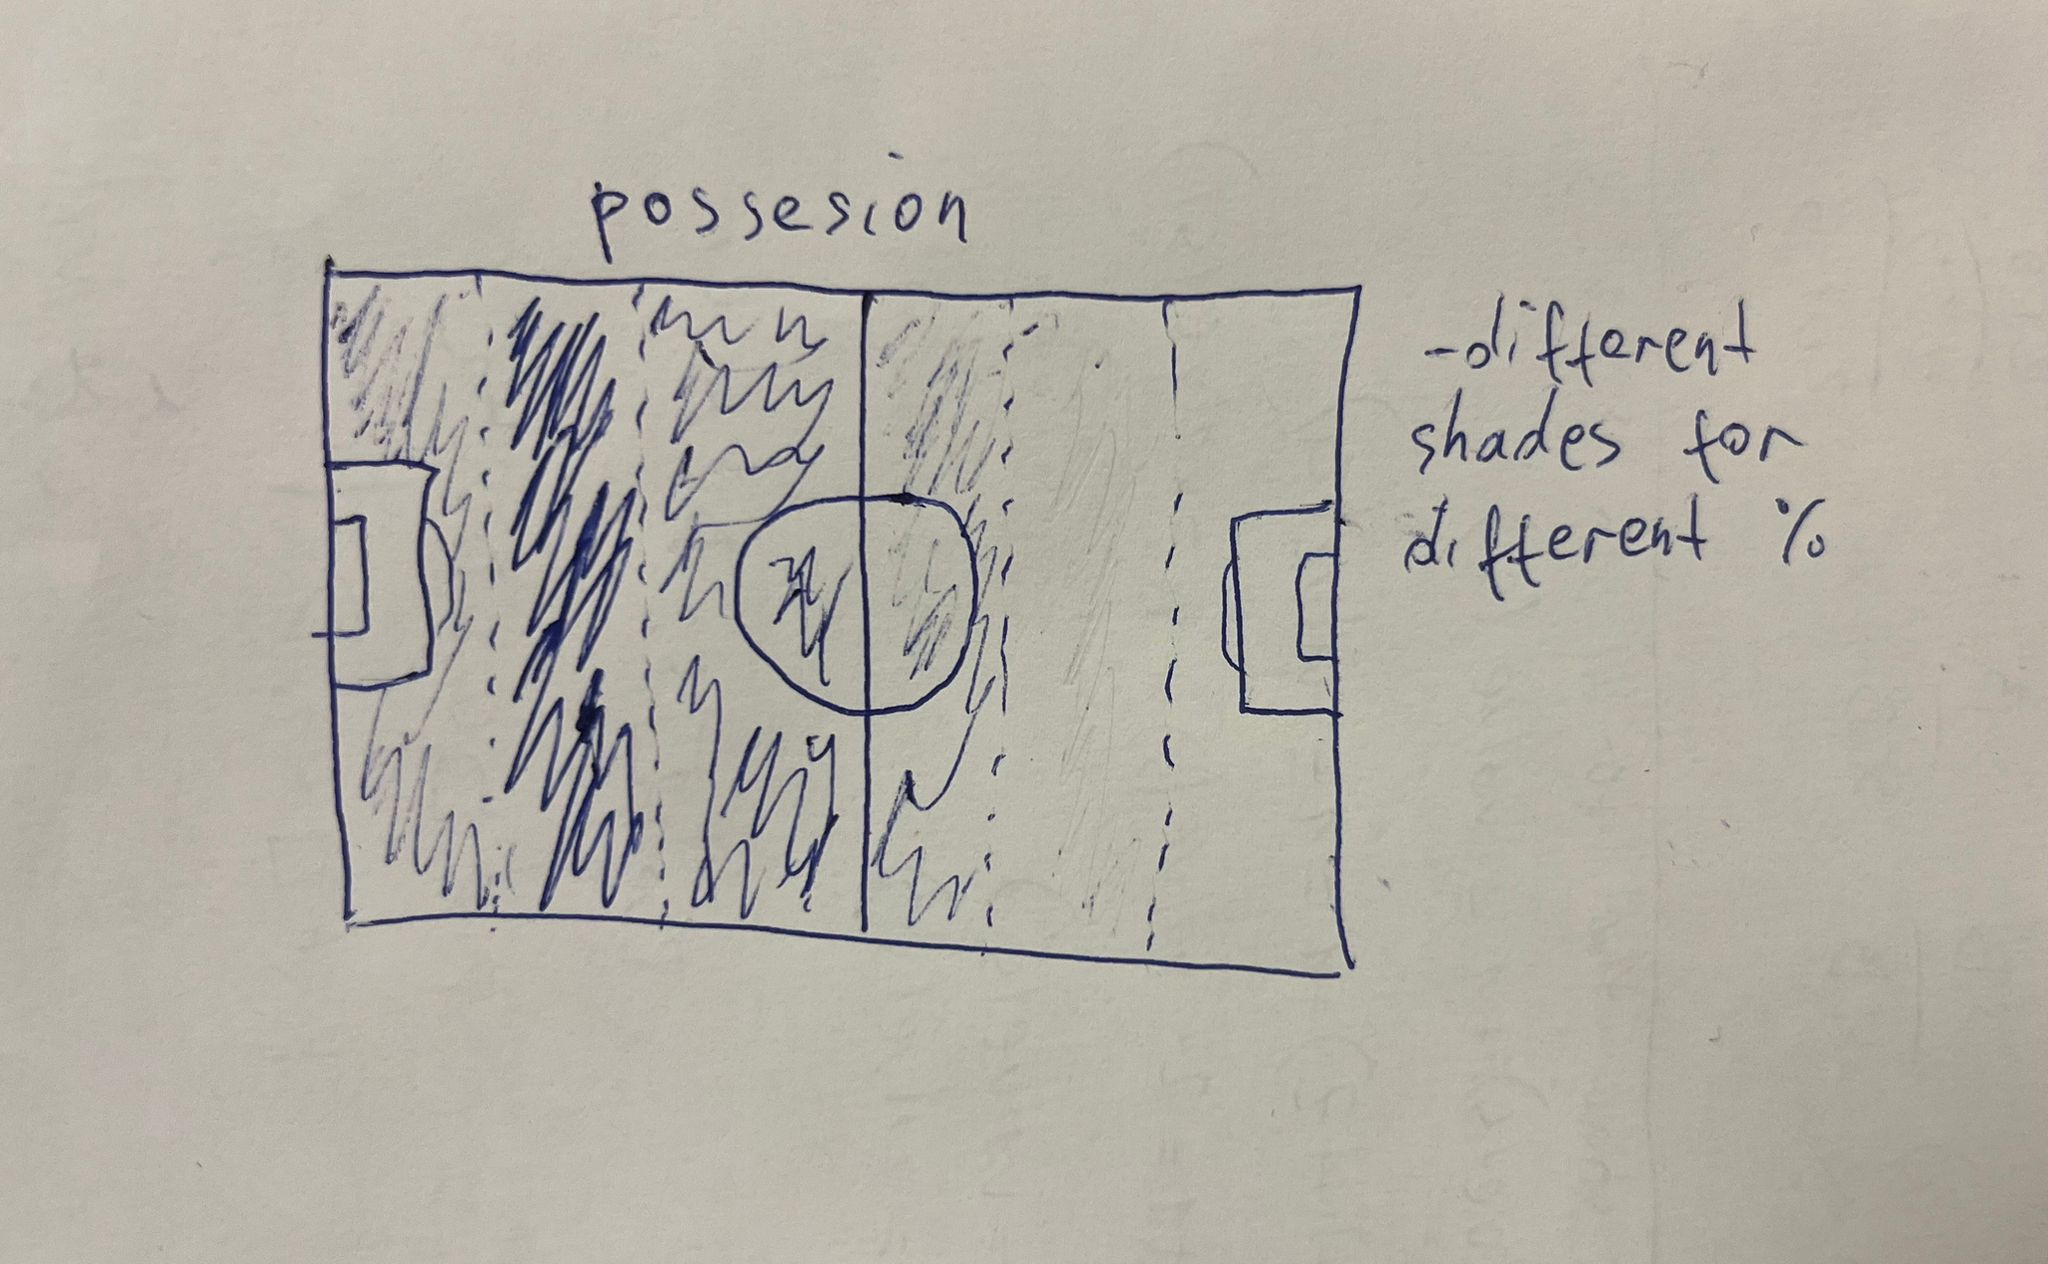 possesion
-different
shades for
different %